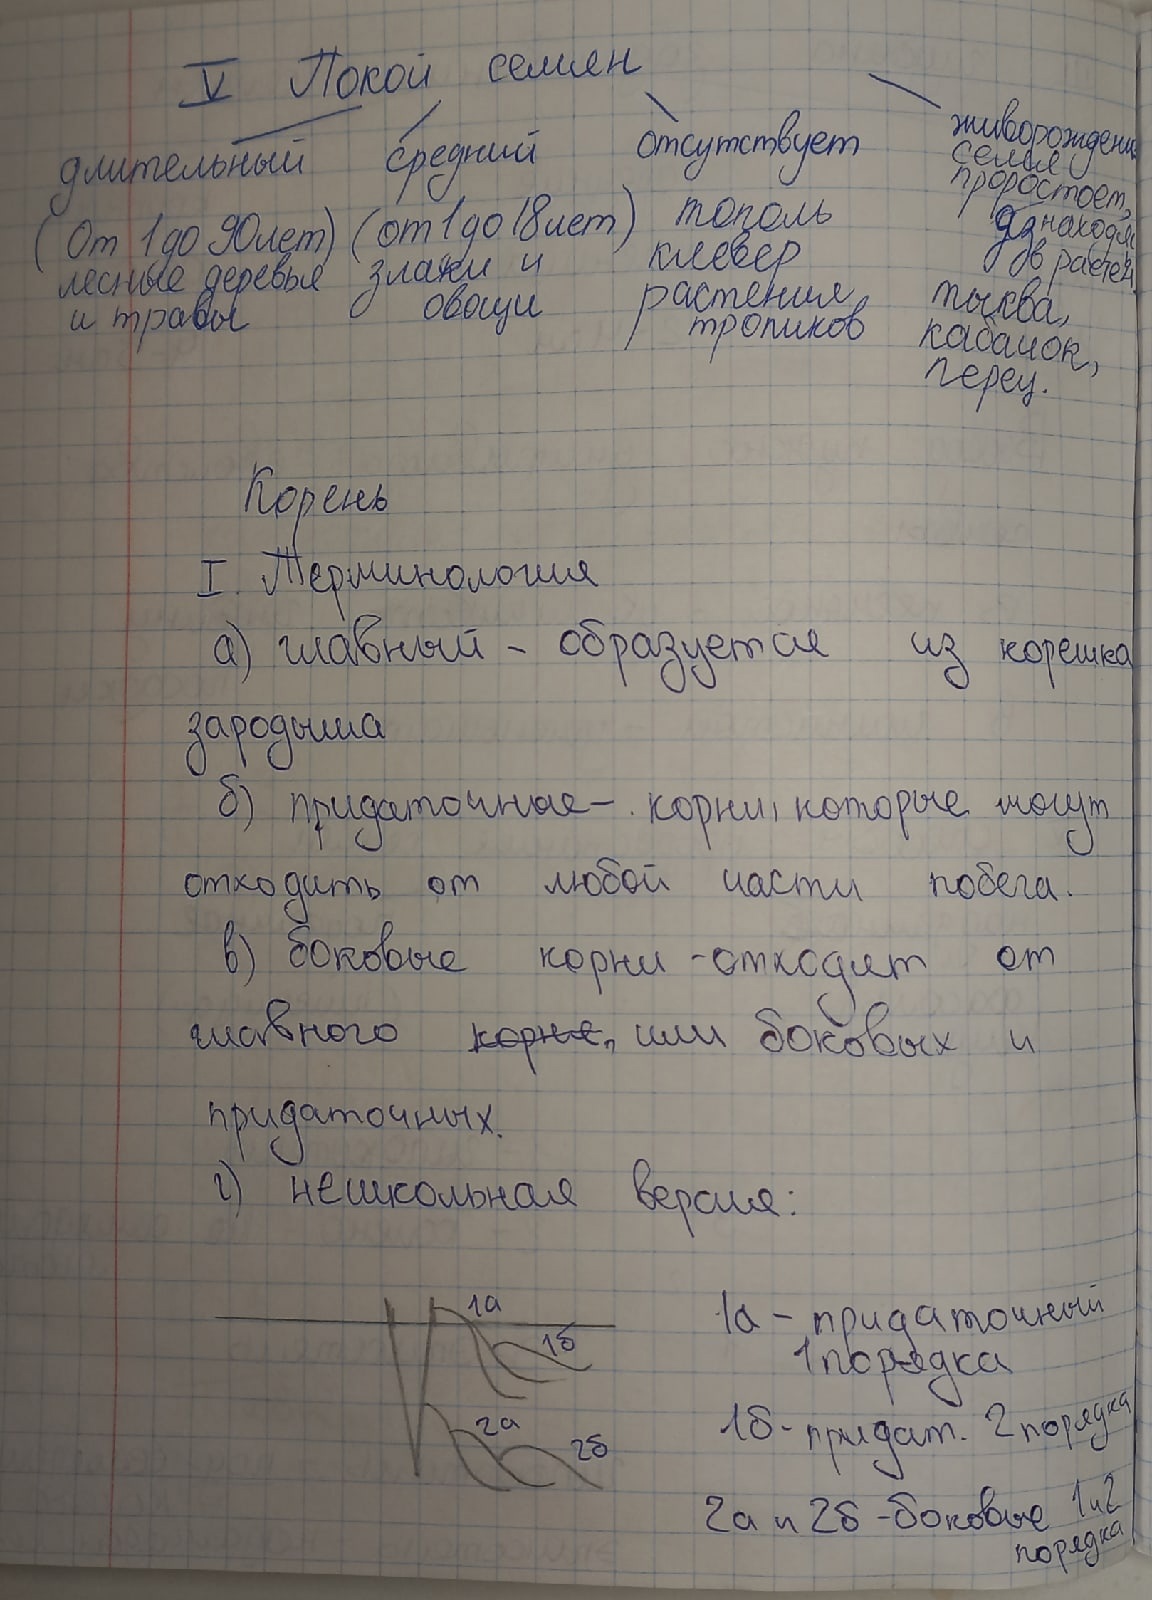 V Покой семян
длительный
(От 1 до 90 лет)
лесные деревья
и травы
средний
(от 1 до 18 лет)
злаки и
овощи
отсутствует
тополь
клевер
растения
тропиков
живорождени
семя
проростает,
находя
в растен
тыква,
кабачок,
перец.
Корень
I. Терминология
а) главный - образуется из корешка
зародыша
б) придаточная - корни, которые могут
отходить от любой части побега.
в) боковые корни - отходят от
главного корня, или боковых и
придаточных.
г) нешкольная версия:
1а
1б
2а
2б
1а - придаточный
1 порядка
1б - придат. 2 порядка
2а и 2б - боковые 1 и 2
порядка